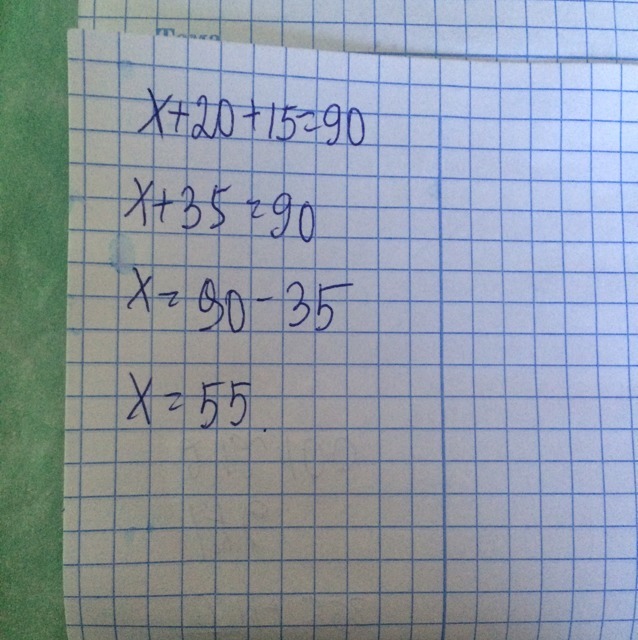 Тема
x+20+15=90
x+35=90
x=90-35
x=55.